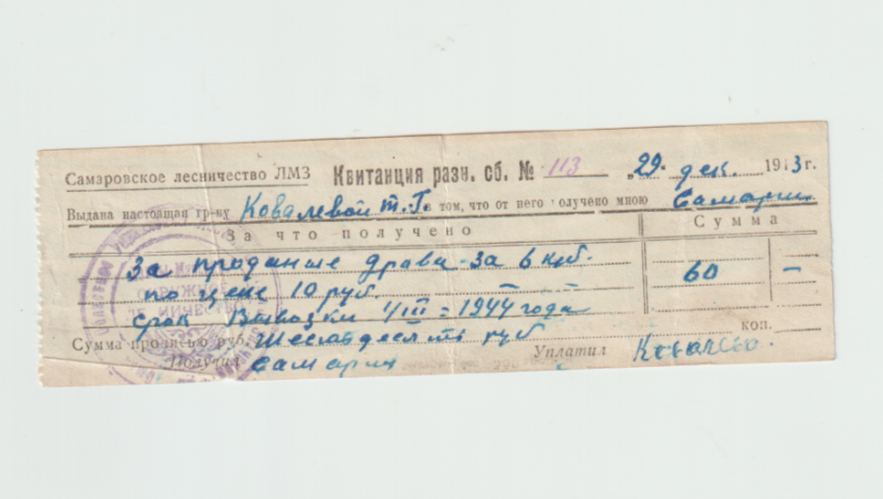 Самзровское лесничество ЛМЗ Квитанция разн. сб. № 113 „29 дек. 1943 г.
Выдана настоящая гр-ну Ковалевой Т. Г. в том, что от него получено мною Самарин
За что получено Сумма
За проданные дрова за 6 куб. 60 —
по цене 10 руб.
срок вывозки 1/III = 1944 года
Сумма прописью руб. Шестьдесят руб коп.
Получил Самарин Уплатил Ковалева.